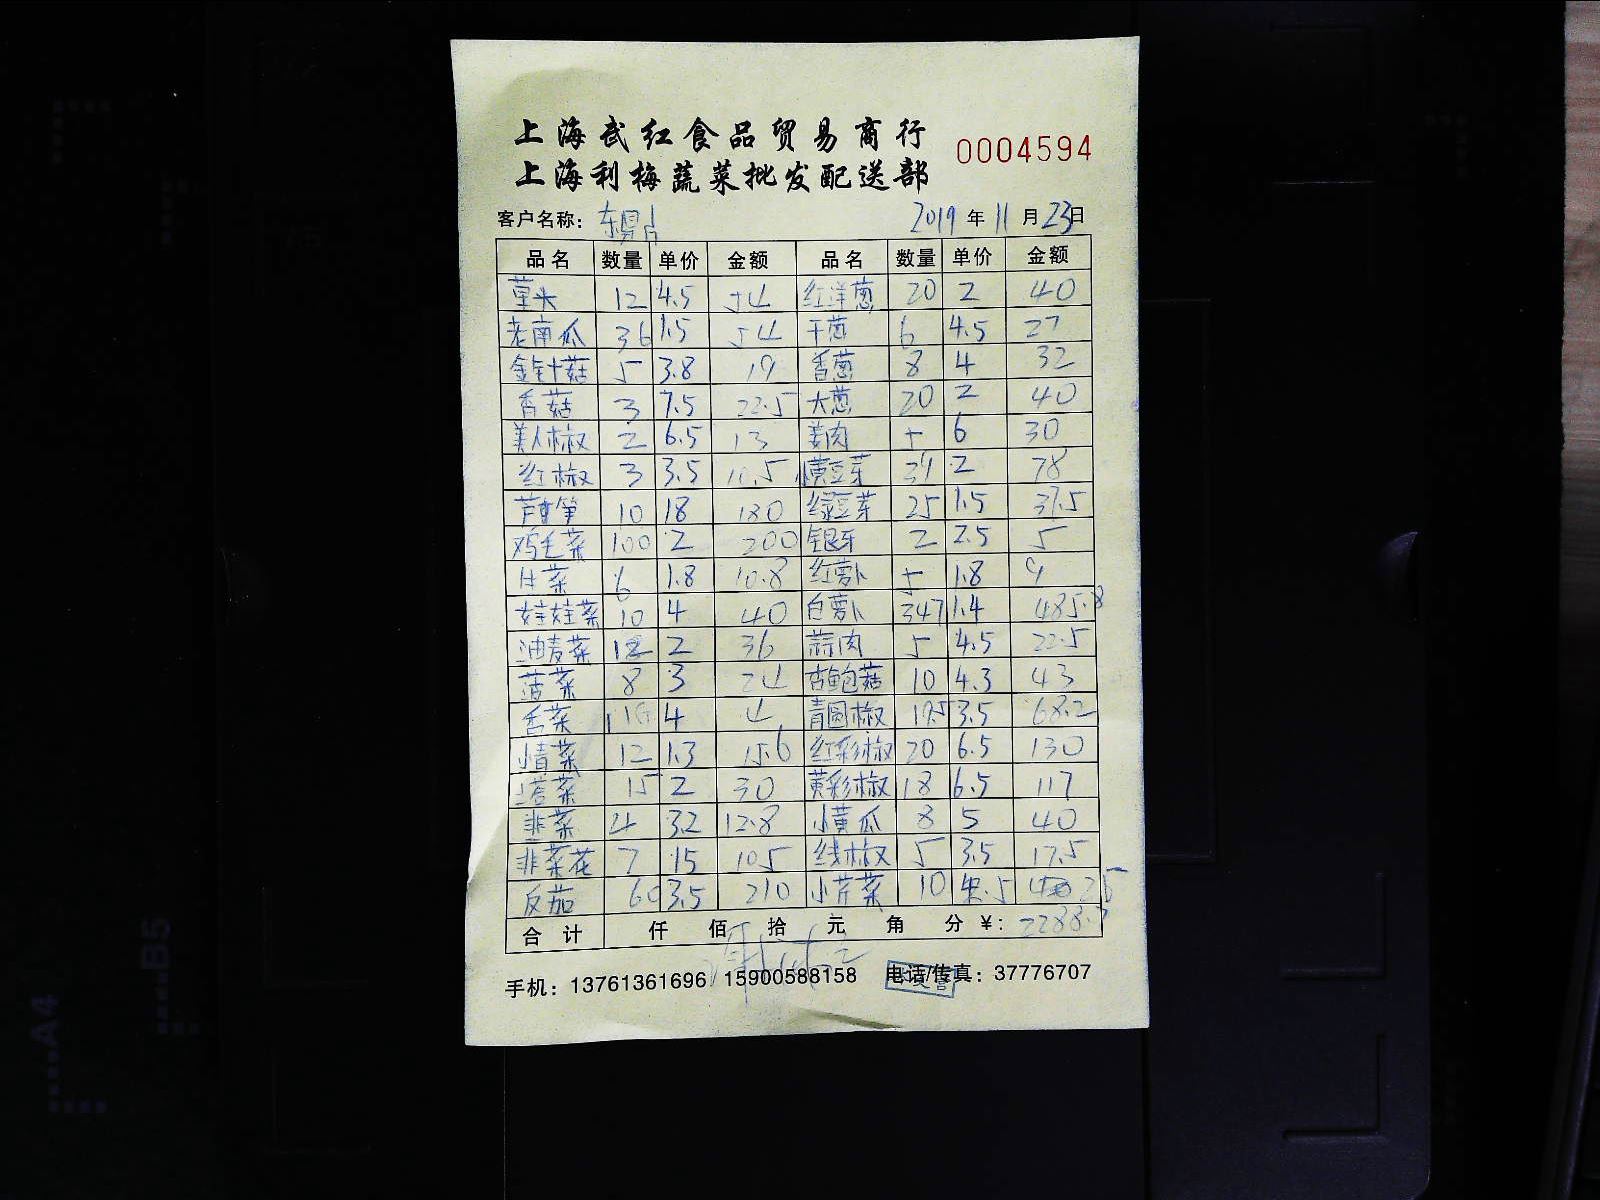 上海武红食品贸易商行
上海利梅蔬菜批发配送部 0004594
客户名称: 2019年11月23日
品名 数量 单价 金额 品名 数量 单价 金额
草头 12 4.5 54 红洋葱 20 2 40
老南瓜 36 1.5 54 干葱 6 4.5 27
金针菇 5 3.8 19 香葱 8 4 32
香菇 3 7.5 22.5 大葱 20 2 40
美人椒 2 6.5 13 姜肉 5 6 30
红椒 3 3.5 10.5 黄豆芽 39 2 78
芦笋 10 18 180 绿豆芽 25 1.5 37.5
鸡毛菜 100 2 200 银牙 2 2.5 5
生菜 6 1.8 10.8 红萝卜 5 1.8 9
娃娃菜 10 4 40 白萝卜 347 1.4 485.8
油麦菜 18 2 36 蒜肉 5 4.5 22.5
菠菜 8 3 24 杏鲍菇 10 4.3 43
香菜 4 4 青圆椒 19.5 3.5 68.2
小青菜 12 1.3 15.6 红彩椒 20 6.5 130
塔菜 15 2 30 黄彩椒 18 6.5 117
韭菜 4 3.2 12.8 小黄瓜 8 5 40
韭菜花 7 15 105 线椒 5 3.5 17.5
反茄 60 3.5 210 小芹菜 10
合计 仟 佰 拾 元 角 分 ¥: 2288.7
手机: 13761361696 15900588158 电话/传真: 37776707